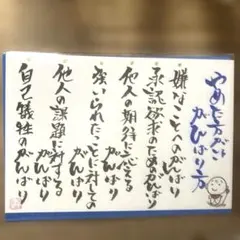 やめた方がいい
がんばり方
嫌なことへのがんばり
承認欲求のためのがんばり
他人の期待に応える
がんばり
強いられたことに対しての
がんばり
他人の課題に対する
がんばり
自己犠牲のがんばり